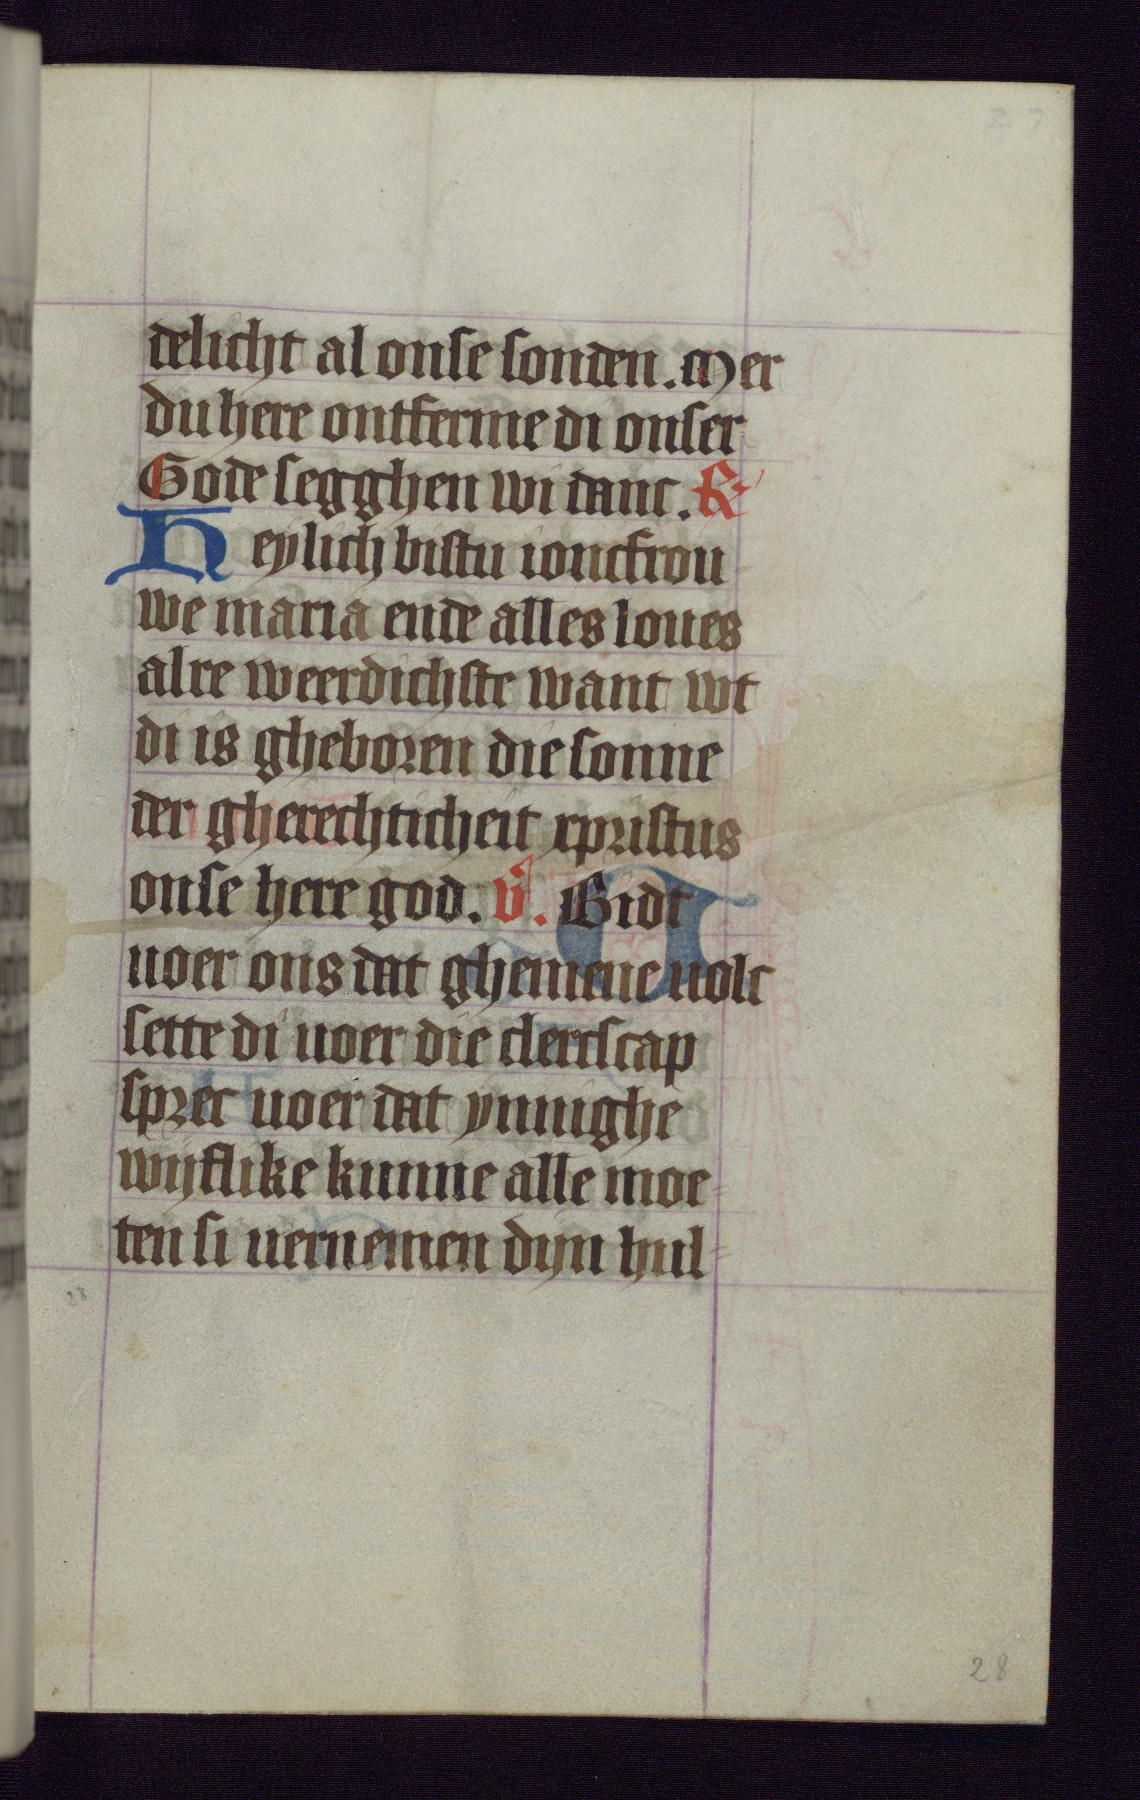 27
delicht al onse sonden. Mer
du here ontferme di onser
Gode segghen wi danc. R
Heylich bistu ioncfrou
we maria ende alles loues
alre weerdichste want wt
di is gheboren die sonne
der gherechticheit xpristus
onse here god. v. Bidt
uoer ons dat ghemene uolc
sette di uoer die clercscap
sprec uoer dat ynnighe
wijflike kunne alle moe-
ten si uernemen dijn hul-
28
28